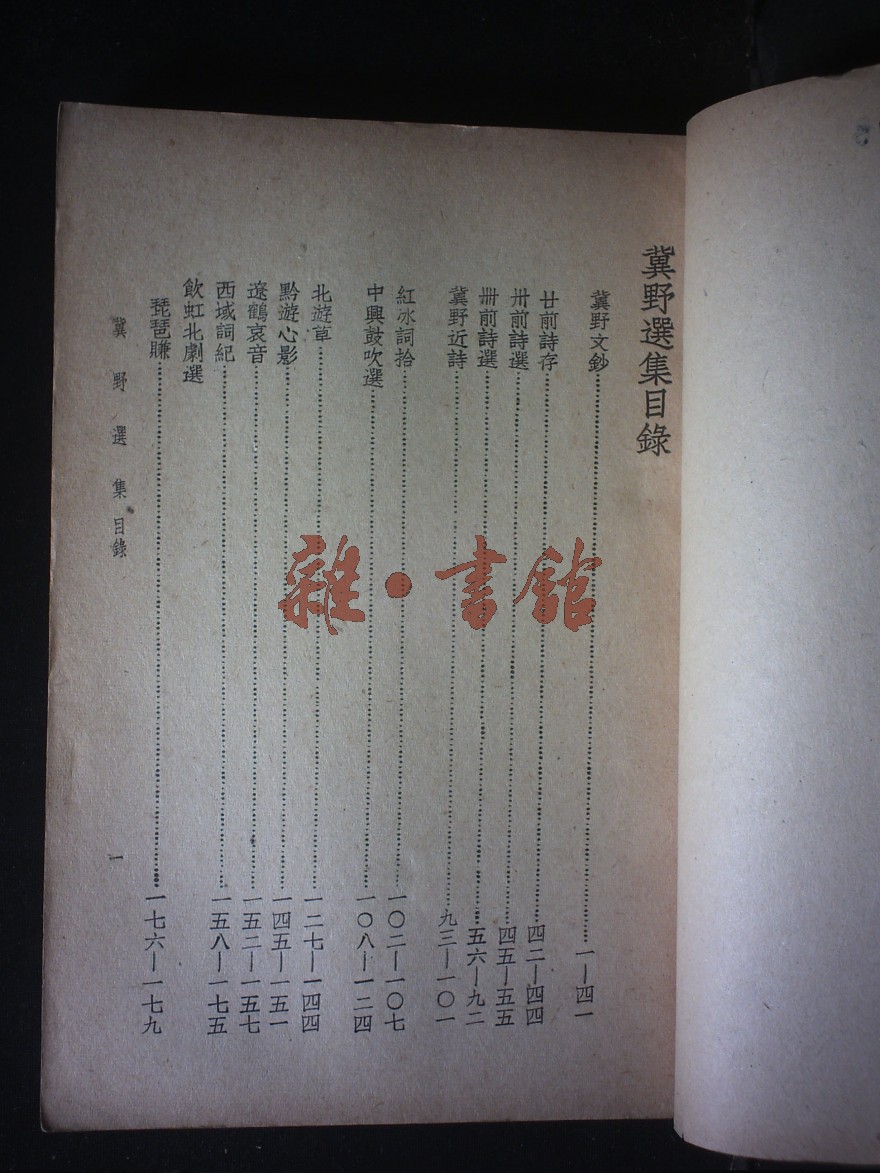 冀野選集目錄
冀野文鈔……一—四一
廿前詩存……四二—四四
卅前詩選……四五—五五
卌前詩選……五六—九二
冀野近詩……九三—一〇一
紅冰詞拾……一〇二—一〇七
中興鼓吹選……一〇八—一二四
北遊草……一二七—一四四
黔遊心影……一四五—一五一
遼鶴哀音……一五二—一五七
西域詞紀……一五八—一七五
飲虹北劇選
琵琶賺……一七六—一七九
冀野選集目錄
一
雜·書館